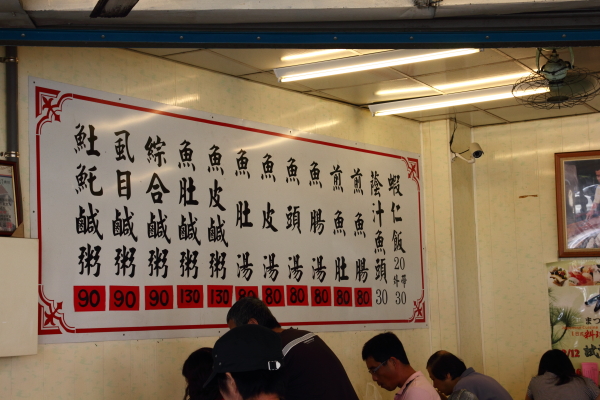 魠鹹粥 90
虱目鹹粥 90
綜合鹹粥 90
魚肚鹹粥 130
魚皮鹹粥 130
魚肚湯 80
魚皮湯 80
魚頭湯 80
魚腸湯 80
煎魚肚 80
煎魚腸 80
蔭汁魚頭 30
蝦仁飯 20 外帶 30
まつ
/12 試